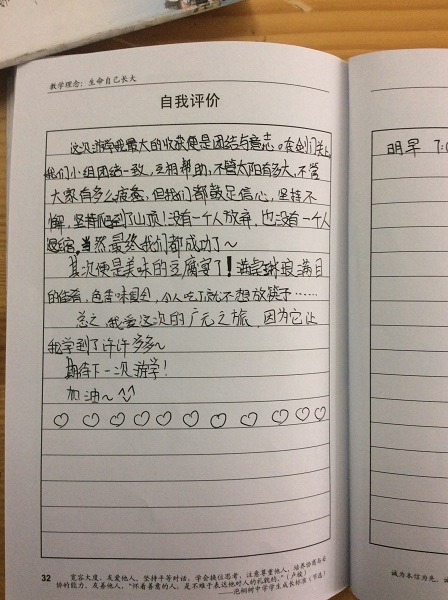 教学理念：生命自己长大
自我评价
这次游学我最大的收获便是团结与意志。在剑门关上，
我们小组团结一致，互相帮助，不管太阳有多大，不管
大家有多么疲惫，但我们都鼓足信心，坚持不
懈，坚持爬到了山顶！没有一个人放弃，也没有一个人
退缩，当然最终我们都成功了～
其次便是美味的豆腐宴了！满是琳琅满目
的佳肴，色香味俱全，令人吃了就不想放筷子……
总之，我爱这次的广元之旅，因为它让
我学到了许许多多～
期待下一次游学！
加油～^^
♡♡♡♡♡♡♡♡♡♡♡♡
明早 7:0
32
宽容大度，友爱他人，坚持平等对话，学会换位思考，注意尊重他人，培养协商与妥
协的能力，友善他人，“怀着善意的人，是不难于表达他对人的礼貌的。”（卢梭）
——泡桐树中学学生成长标准（节选）
诚为本信为先，